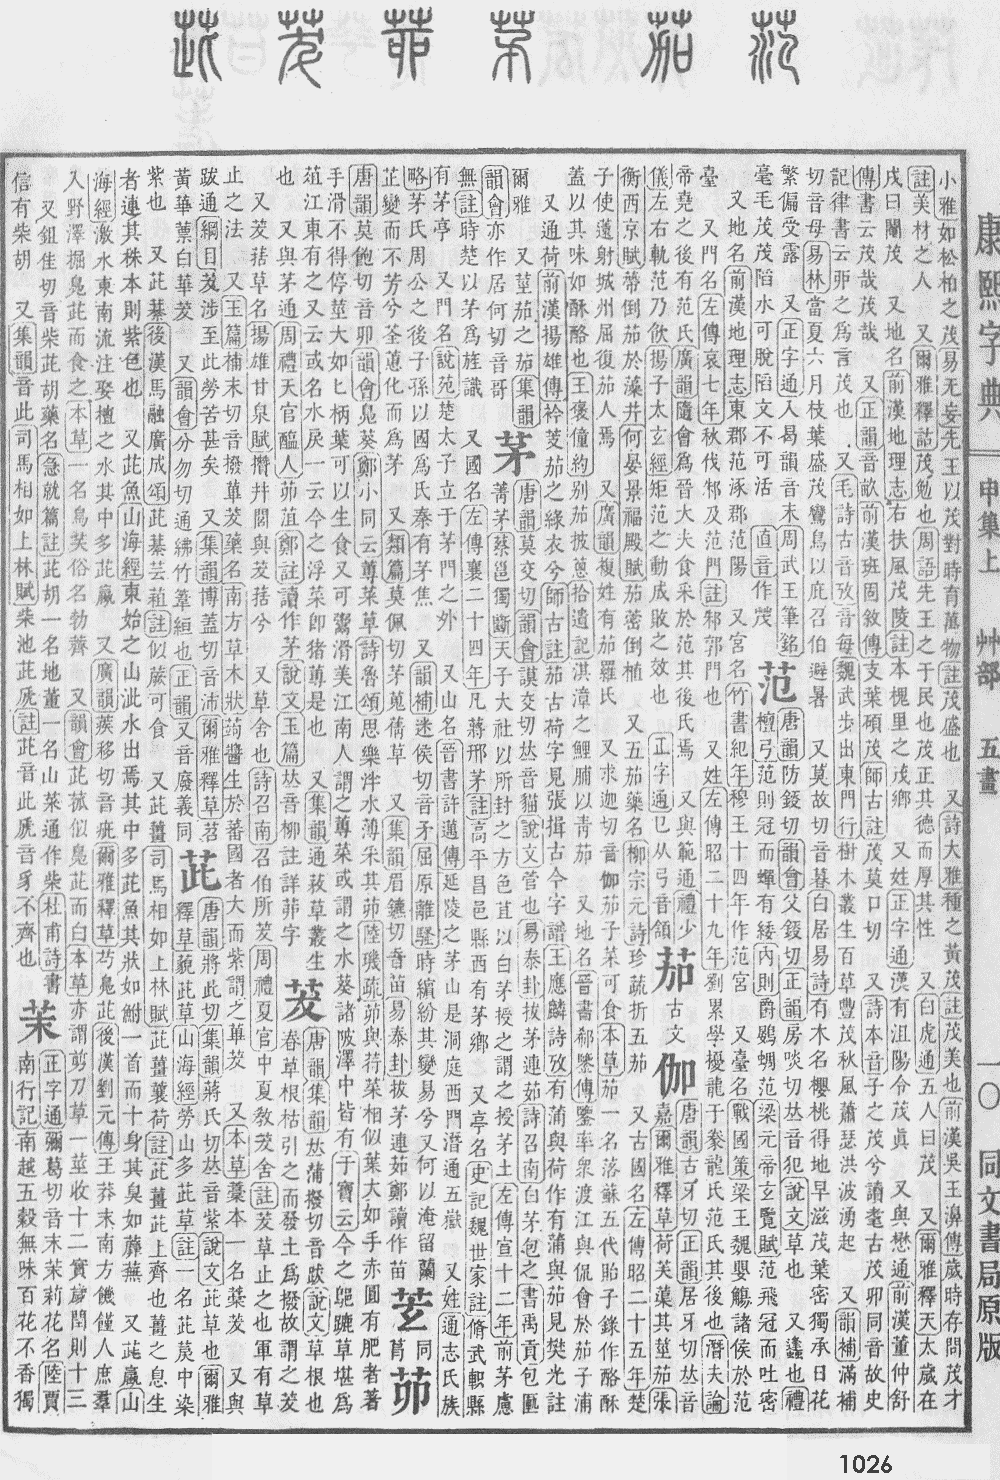 范 茄 茅 茆 茇 茈
小雅如松柏之茂易无妄先王以茂對時育萬物註茂盛也 又詩大雅種之黃茂註茂美也前漢吳王濞傳歲時存問茂才
註美材之人 又爾雅釋詁茂勉也周語先王之于民也茂正其德而厚其性 又白虎通五人曰茂 又爾雅釋天太歲在
戌曰閹茂 又地名前漢地理志右扶風茂陵註本槐里之茂鄉 又姓正字通漢有沮陽令茂眞 又與懋通前漢董仲舒
傳書云茂哉茂哉 又正韻音畝前漢班固敘傳支葉碩茂師古註茂莫口切 又詩本音子之茂兮讀耄古茂卯同音故史
記律書云丣之爲言茂也 又毛詩古音攷音每魏武步出東門行樹木叢生百草豐茂秋風蕭瑟洪波湧起 又韻補滿補
切音母易林當夏六月枝葉盛茂鸞鳥以庇召伯避暑 又莫故切音暮白居易詩有木名櫻桃得地早滋茂葉密獨承日花
繁偏受露 又正字通入曷韻音末周武王筆銘
毫毛茂茂陷水可脫陷文不可活 直音作
范
唐韻防錽切韻會父錽切正韻房啖切𠀤音犯說文草也 又蠭也禮
檀弓范則冠而蟬有緌內則爵鷃蜩范梁元帝玄覽賦范飛冠而吐密
又地名前漢地理志東郡范涿郡范陽 又宮名竹書紀年穆王十四年作范宮 又臺名戰國策梁王魏嬰觴諸侯於范
臺 又門名左傳哀七年秋伐邾及范門註邾郭門也 又姓左傳昭二十九年劉累學擾龍于豢龍氏范氏其後也潛夫論
帝堯之後有范氏廣韻隨會爲晉大夫食采於范其後氏焉 又與範通禮少
儀左右軌范乃飮揚子太玄經矩范之動成敗之效也 正字通巳从弓音頷
茄
古文
伽
唐韻古牙切正韻居牙切𠀤音
嘉爾雅釋草荷芙蕖其莖茄張
衡西京賦蔕倒茄於藻井何晏景福殿賦茄蔤倒植 又五茄藥名柳宗元詩珍蔬折五茄 又古國名左傳昭二十五年楚
子使薳射城州屈復茄人焉 又廣韻複姓有茄羅氏 又求迦切音伽茄子菜可食本草茄一名落蘇五代貽子錄作酪酥
蓋以其味如酥酪也王褒僮約別茄披蔥拾遺記淇漳之鯉脯以靑茄 又地名晉書郗鑒傳鑒率衆渡江與侃會於茄子浦
又通荷前漢揚雄傳衿芰茄之綠衣兮師古註茄古荷字見張揖古今字譜王應麟詩攷有蒲與荷作有蒲與茄見樊光註
爾雅 又莖茄之茄集韻
韻會亦作居何切音哥
茅
唐韻莫交切韻會謨交切𠀤音貓說文菅也易泰卦拔茅連茹詩召南白茅包之書禹貢包匭
菁茅蔡邕獨斷天子大社以所封之方色苴以白茅授之謂之授茅土左傳宣十二年前茅慮
無註時楚以茅爲旌識 又國名左傳襄二十四年凡蔣邢茅註高平昌邑縣西有茅鄉 又亭名史記魏世家註脩武軹縣
有茅亭 又門名說苑楚太子立于茅門之外 又山名晉書許邁傳延陵之茅山是洞庭西門潛通五嶽 又姓通志氏族
略茅氏周公之後子孫以國爲氏秦有茅焦 又韻補迷侯切音矛屈原離騷時繽紛其變易兮又何以淹留蘭
芷變而不芳兮荃蕙化而爲茅 又類篇莫佩切茅蒐蒨草 又集韻眉鑣切音苗易泰卦拔茅連茹鄭讀作苗
茆
唐韻莫飽切音卯韻會鳧葵鄭小同云蓴菜草詩魯頌思樂泮水薄采其茆陸璣疏茆與荇菜相似葉大如手赤圓有肥者著
手滑不得停莖大如匕柄葉可以生食又可鬻滑美江南人謂之蓴菜或謂之水葵諸陂澤中皆有于寶云今之䴙𪆟草堪爲
菹江東有之又云或名水戾一云今之浮菜卽猪蓴是也 又集韻通菽草叢生
也 又與茅通周禮天官醢人茆菹鄭註讀作茅說文玉篇𠀤音柳註詳丣字
茇
唐韻集韻𠀤蒲撥切音跋說文草根也
春草根枯引之而發土爲撥故謂之茇
又茇葀草名揚雄甘泉賦攢幷閭與茇葀兮 又草舍也詩召南召伯所茇周禮夏官中夏敎茇舍註茇草止之也軍有草
止之法 又玉篇補末切音撥蓽茇藥名南方草木狀蒟醬生於蕃國者大而紫謂之蓽茇 又本草藁本一名藁茇 又與
跋通綱目茇涉至此勞苦甚矣 又集韻博蓋切音沛爾雅釋草苕
黃華蔈白華茇 又韻會分勿切通紼竹筰縆也正韻又音廢義同
茈
唐韻將此切集韻蔣氏切𠀤音紫說文茈草也爾雅
釋草藐茈草山海經勞山多茈草註一名茈䓞中染
紫也 又茈萁後漢馬融廣成頌茈萁芸蒩註似蕨可食 又茈薑司馬相如上林賦茈薑蘘荷註茈薑茈上齊也薑之息生
者連其株本則紫色也 又茈魚山海經東始之山泚水出焉其中多茈魚其狀如鮒一首而十身其臭如蘼蕪 又茈蠃山
海經激水東南流注娶檀之水其中多茈蠃 又廣韻蒺移切音疵爾雅釋草芍鳧茈後漢劉元傳王莽末南方饑僅人庶羣
入野澤掘鳧茈而食之本草一名烏芙俗名勃薺 又韻會茈菰似鳧茈而白本草亦謂剪刀草一莖收十二實歲閏則十三
又鉏佳切音柴茈胡藥名急就篇註茈胡一名地薰一名山菜通作柴杜甫詩書
信有柴胡 又集韻音此司馬相如上林賦柴池茈虒註茈音此虒音豸不齊也
茉
正字通彌葛切音末茉莉花名陸賈
南行記南越五穀無味百花不香獨
康熙字典 申集上 艸部 五畫 一〇 同文書局原版
1026